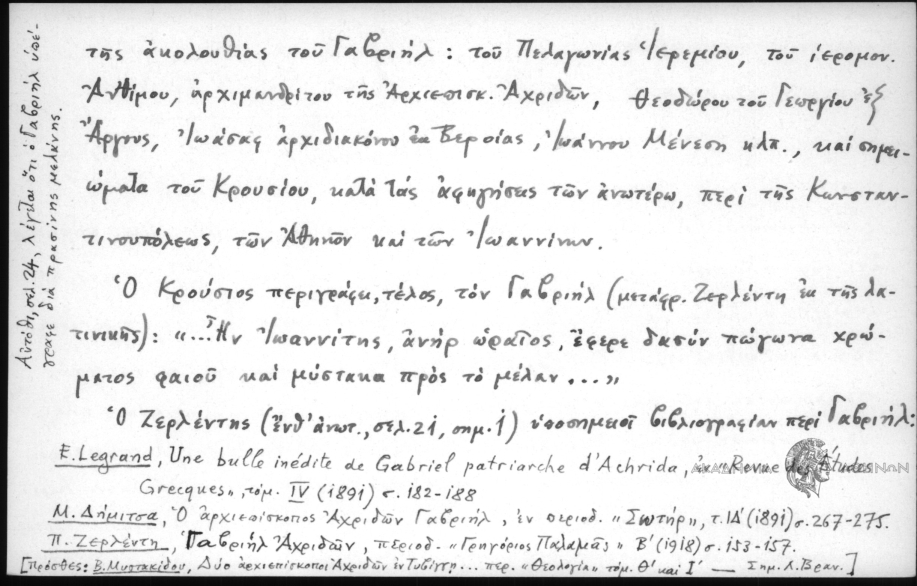 τῆς ἀκολουθίας τοῦ Γαβριήλ: τοῦ Πελαγωνίας Ἱερεμίου, τοῦ ἱερομον.
Ἀνθίμου, ἀρχιμανδρίτου τῆς Ἀρχιεπισκ. Ἀχριδῶν, Θεοδώρου τοῦ Γεωργίου ἐξ
Ἄργους, Ἰωάσαφ ἀρχιδιακόνου ἐκ Βεροίας, Ἰωάννου Μένεση κλπ., καὶ σημει-
ώματα τοῦ Κρουσίου, κατὰ τὰς ἀφηγήσεις τῶν ἀνωτέρω, περὶ τῆς Κωνσταν-
τινουπόλεως, τῶν Ἀθηνῶν καὶ τῶν Ἰωαννίνων.
Ὁ Κρούσιος περιγράφει, τέλος, τὸν Γαβριήλ (μετάφρ. Ζερλέντη ἐκ τῆς λα-
τινικῆς): «...Ἦν Ἰωαννίτης, ἀνὴρ ὡραῖος, ἔφερε δασὺν πώγωνα χρώ-
ματος φαιοῦ καὶ μύστακα πρὸς τὸ μέλαν...»
Ὁ Ζερλέντης (ἔνθ' ἀνωτ., σελ. 21, σημ. 1) ὑποσημειοῖ βιβλιογραφίαν περὶ Γαβριήλ:
E. Legrand, Une bulle inédite de Gabriel patriarche d'Achrida, ἐν «Revue des Études
Grecques», τόμ. IV (1891) σ. 182-188
Μ. Δήμιτσα, Ὁ ἀρχιεπίσκοπος Ἀχριδῶν Γαβριήλ, ἐν περιοδ. «Σωτήρ», τ. ΙΔ' (1891) σ. 267-275.
Π. Ζερλέντη, Γαβριὴλ Ἀχριδῶν, περιοδ. «Γρηγόριος Παλαμᾶς» Β' (1918) σ. 153-157.
[Πρόσθες: Β. Μυστακίδου, Δύο ἀρχιεπίσκοποι Ἀχριδῶν ἐν Τυβίγγῃ... περ. «Θεολογία» τόμ. Θ' καὶ Ι' — Σημ. Λ. Βραν.]
Αὐτόθι, σελ. 24, λέγεται ὅτι ὁ Γαβριὴλ ὑπέ-
γραφε διὰ πρασίνης μελάνης.